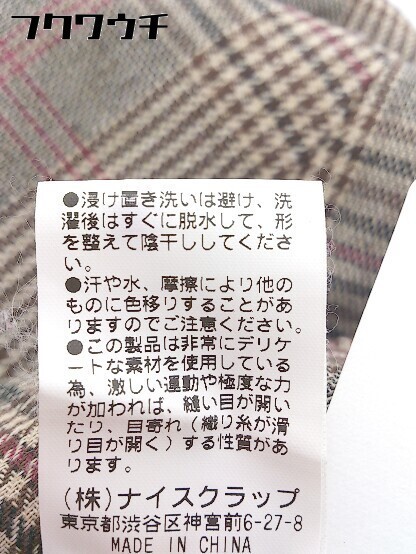 フクワウチ
●浸け置き洗いは避け、洗
濯後はすぐに脱水して、形
を整えて陰干ししてくださ
い。
●汗や水、摩擦により他の
ものに色移りすることがあ
りますのでご注意ください。
●この製品は非常にデリケ
ートな素材を使用している
為、激しい運動や極度な力
が加われば、縫い目が開い
たり、目寄れ（織り糸が滑
り目が開く）する性質があ
ります。
（株）ナイスクラップ
東京都渋谷区神宮前6-27-8
MADE IN CHINA